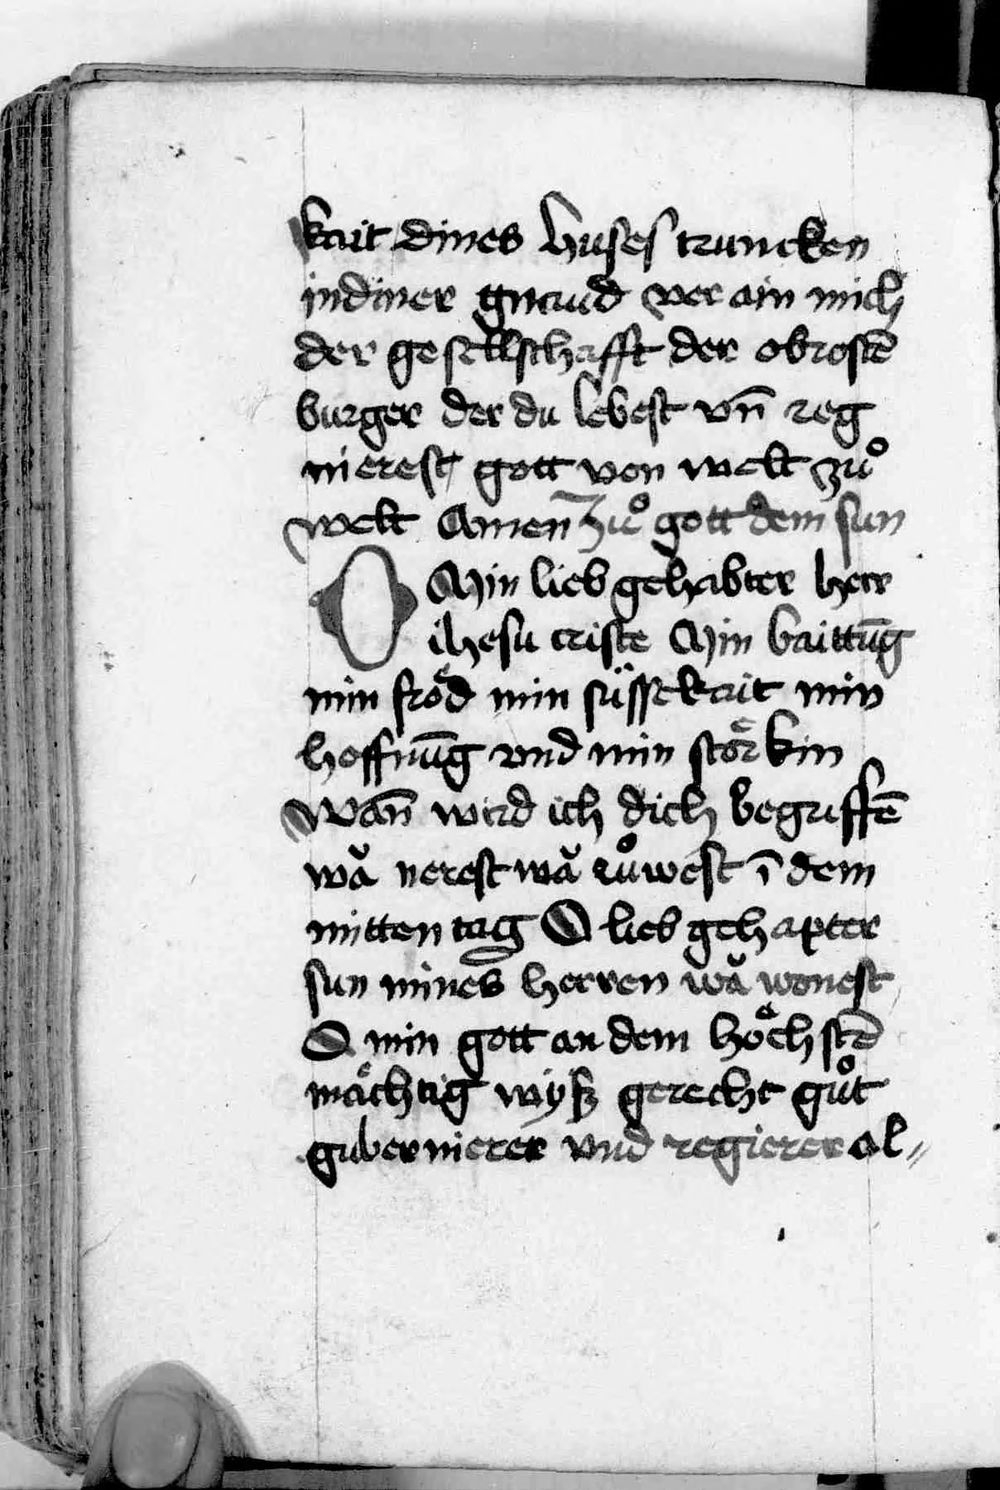 kait dines huses truncken
in diner gnaud ver ain mich
der gesellschafft der obrostē
burger der du lebest vn̄ reg
nierest gott von welt zuͦ
welt Amen Zuͦ gott dem sun
O Min lieb gehabter herr
ihesu criste Min baittūg
min froͤd min suͤssekait min
hoffnūg vnd min stoͤrkin
Wan̄ wird ich dich begriffē
wă nerest wă ruͦwest ī dem
mitten tag O lieb gehapter
sun mines herren wă wonest
O min gott an dem hoͤchstē
maͤchtig wyß gerecht guͦt
gubernierer vnd regierer al⸗